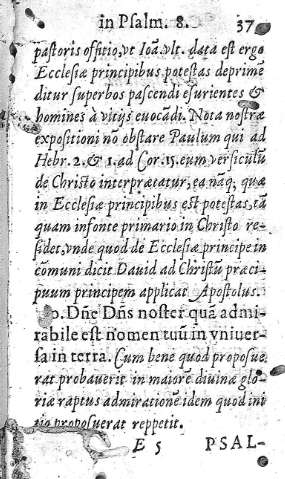 in Psalm. 8. 37
pastoris offitio, vt Ioã. vlt. data est ergo
Ecclesiæ principibus potestas deprimẽ
ditur superbos pascendi esurientes &
homines à vitijs euocãdi. Nota nostræ
expositioni nõ obstare Paulum qui ad
Hebr. 2. & 1. ad Cor. 15. eum versiculũ
de Christo interprætatur, ea nãq; quæ
in Ecclesiæ principibus est potestas, tã
quam in fonte primario in Christo re-
sidet, vnde quod de Ecclesiæ principe in
comuni dicit Dauid ad Christũ præci-
puum principem applicat Apostolus.
Dñe Dñs noster quã admi-
rabile est nomen tuũ in vniuer-
sa in terra. Cum bene quod proposue
rat probauerit in maiorẽ diuinæ glo-
riæ raptus admirationẽ idem quod ini
tio proposuerat reppetit.
E 5 PSAL-